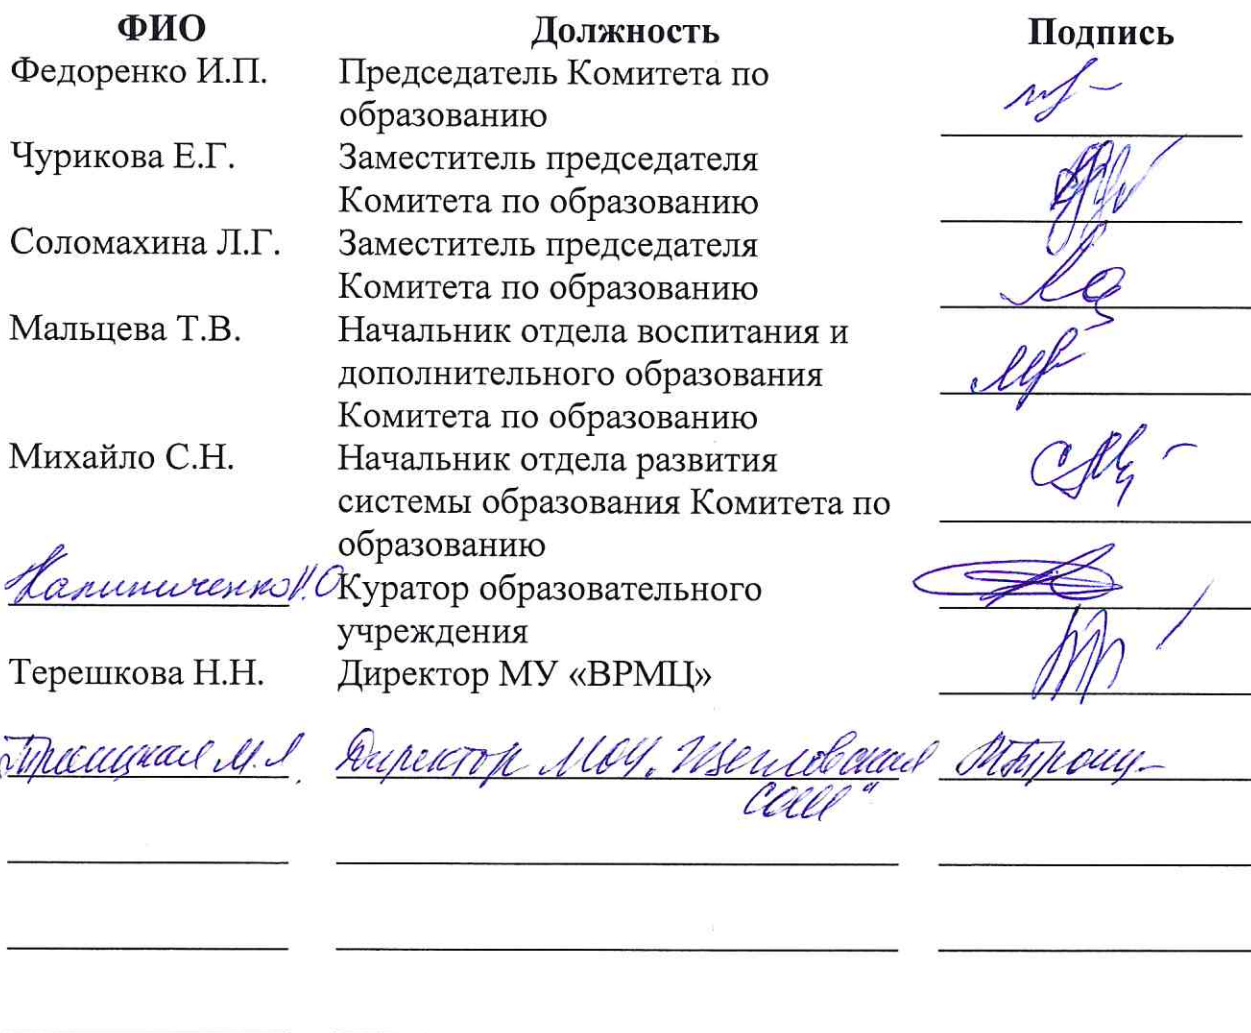 ФИО Должность Подпись
Федоренко И.П. Председатель Комитета по
образованию
Чурикова Е.Г. Заместитель председателя
Комитета по образованию
Соломахина Л.Г. Заместитель председателя
Комитета по образованию
Мальцева Т.В. Начальник отдела воспитания и
дополнительного образования
Комитета по образованию
Михайло С.Н. Начальник отдела развития
системы образования Комитета по
образованию
Куратор образовательного
учреждения
Терешкова Н.Н. Директор МУ «ВРМЦ»
Троицкая М.Л. Директор МОУ „Щегловская
СОШ“